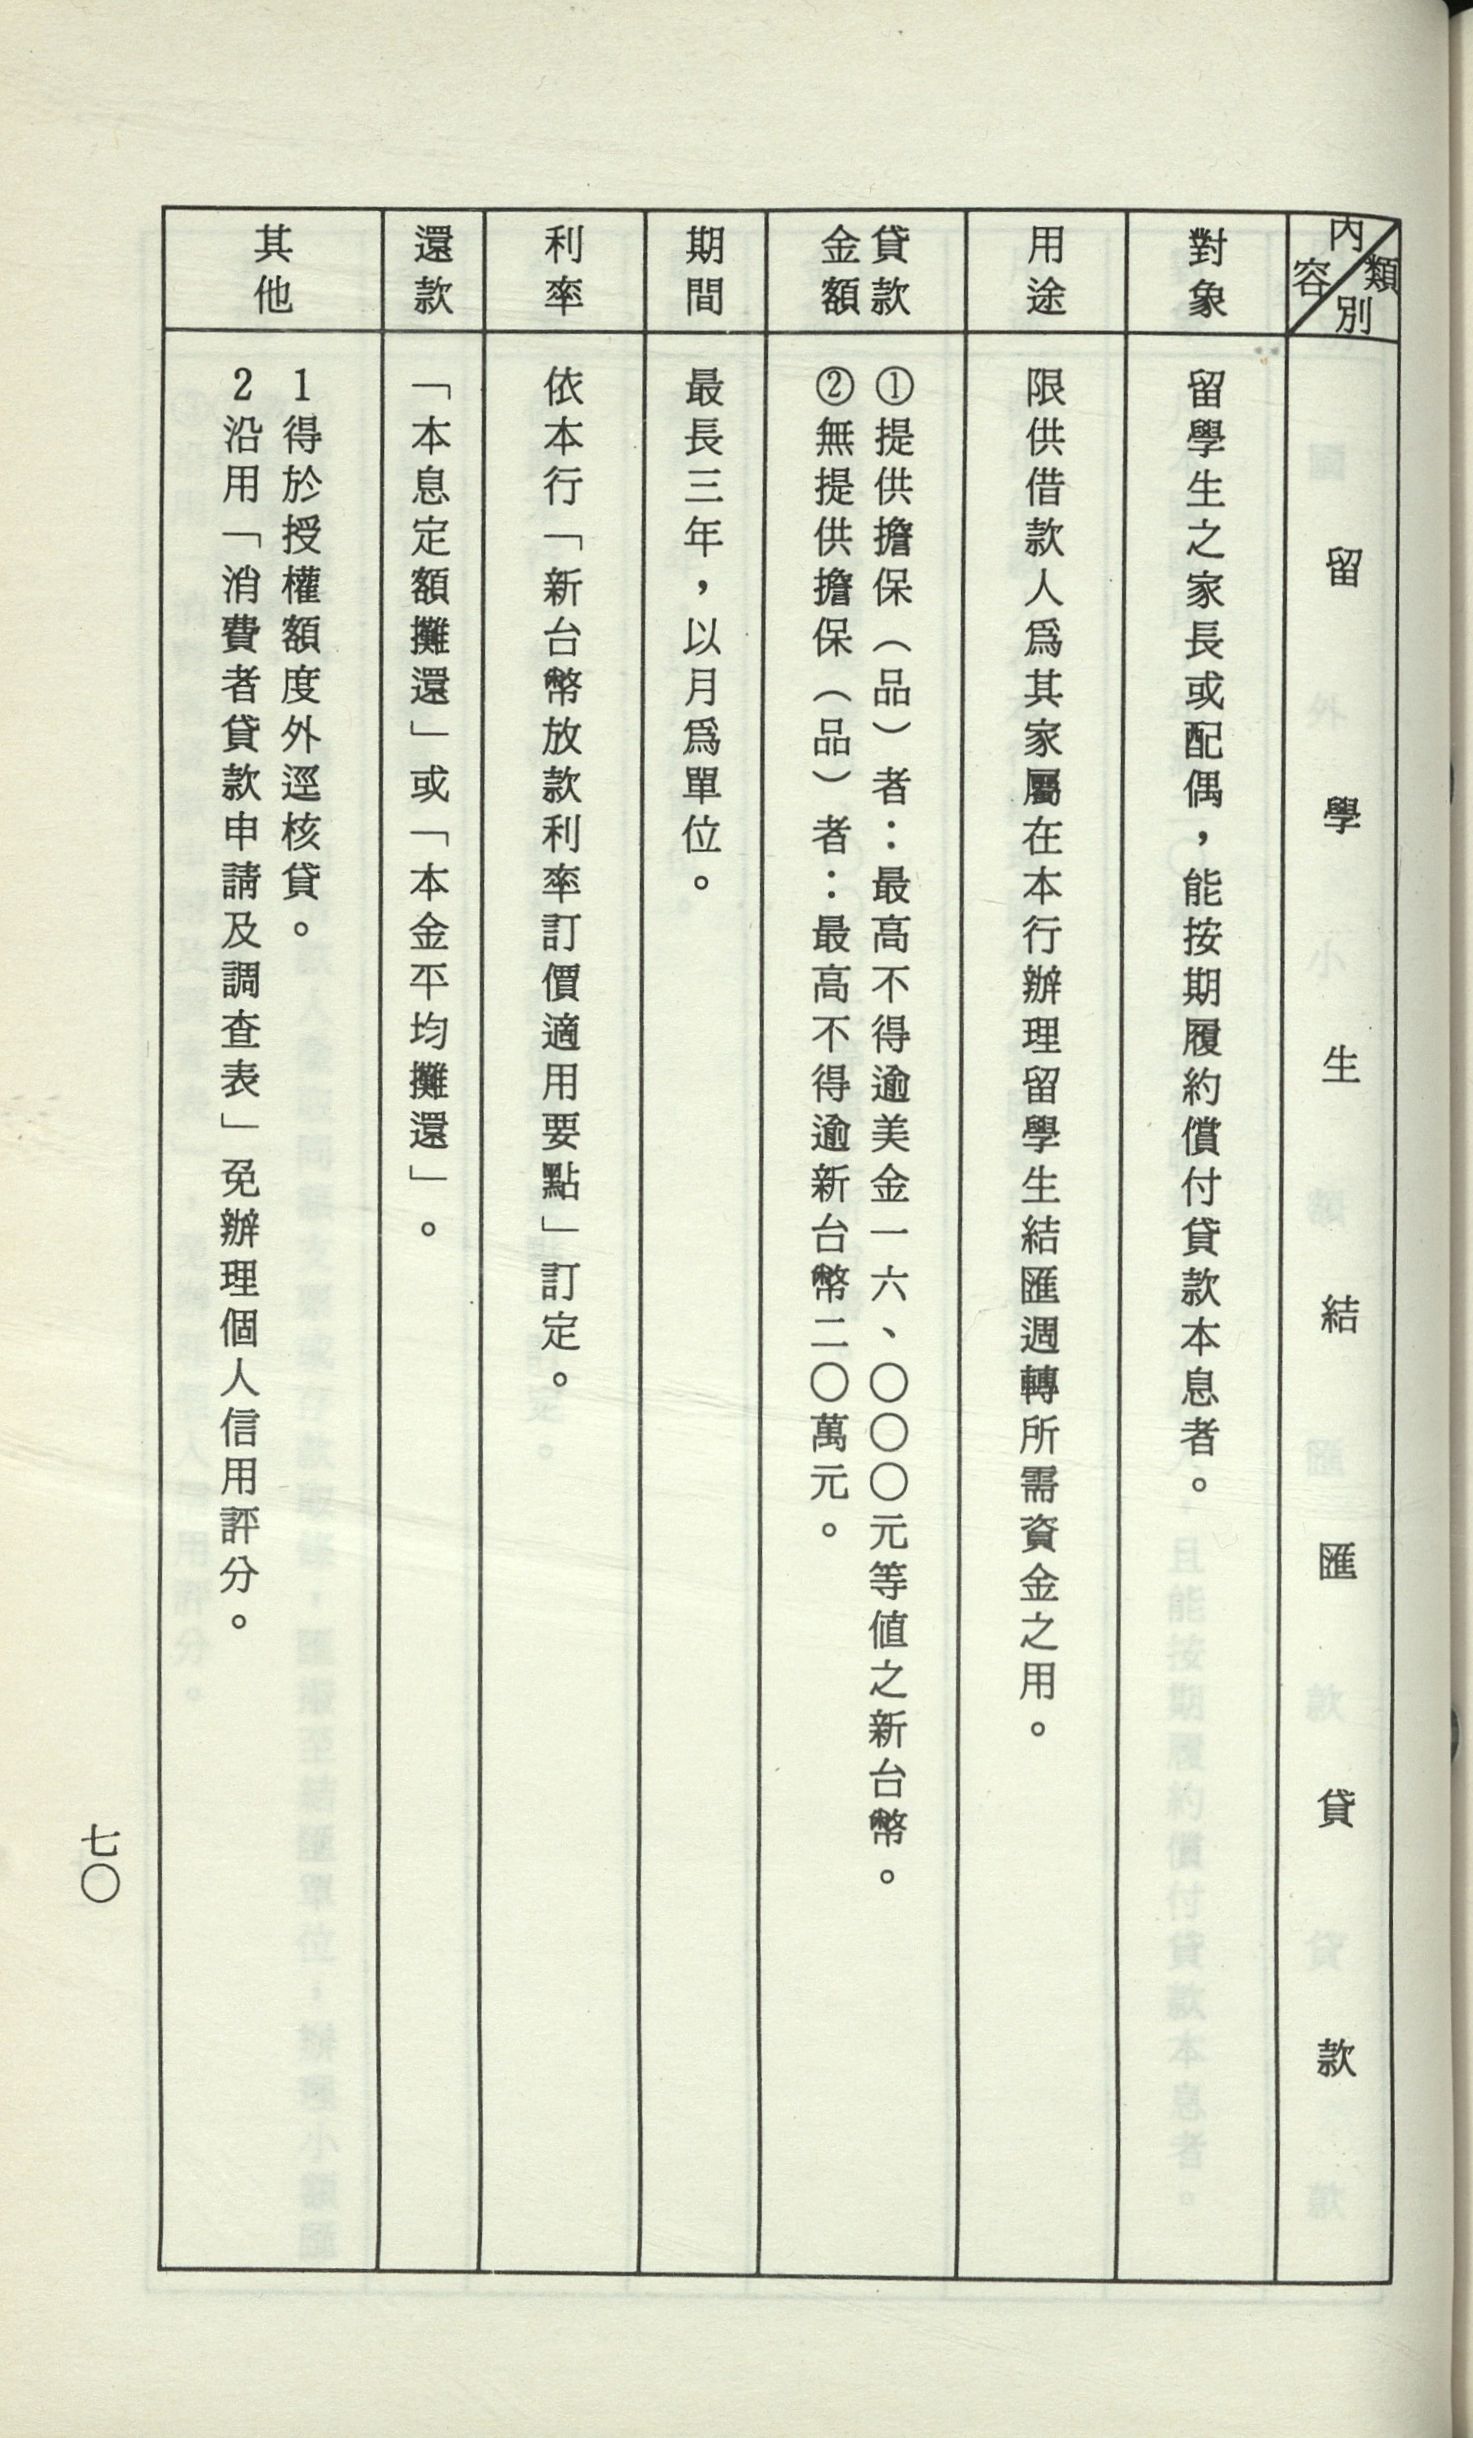 類別
內容
留學生結匯貸款
對象
留學生之家長或配偶，能按期履約償付貸款本息者。
用途
限供借款人爲其家屬在本行辦理留學生結匯週轉所需資金之用。
貸款
金額
①提供擔保（品）者：最高不得逾美金一六、〇〇〇元等値之新台幣。
②無提供擔保（品）者：最高不得逾新台幣二〇萬元。
期間
最長三年，以月爲單位。
利率
依本行「新台幣放款利率訂價適用要點」訂定。
還款
「本息定額攤還」或「本金平均攤還」。
其他
1得於授權額度外逕核貸。
2沿用「消費者貸款申請及調查表」免辦理個人信用評分。
七〇